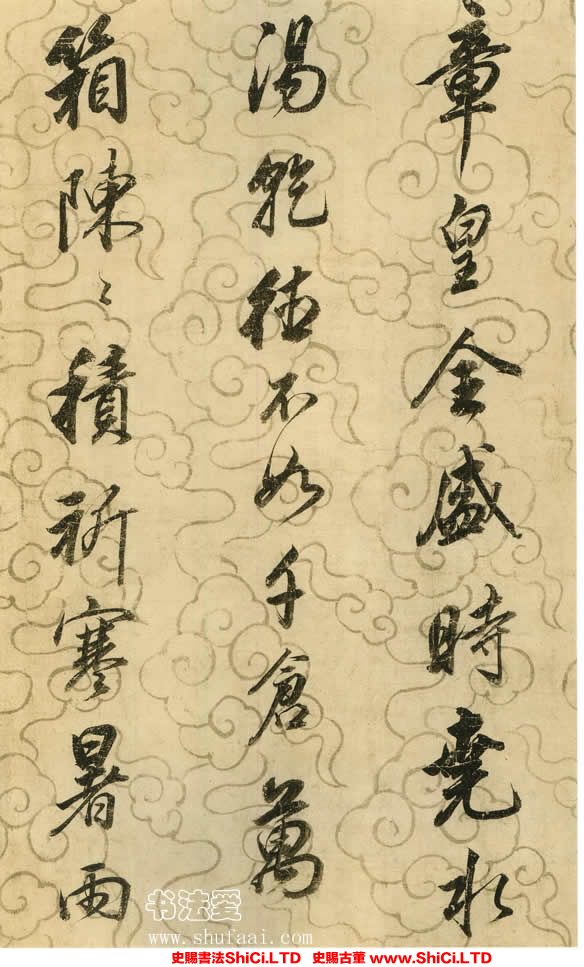 章皇全盛時堯水
湯乾猶不如千倉萬
箱陳〻積祈寒暑雨
书法爱
www.shufaai.com
史賜書法ShiCi.LTD 史賜古董 www.ShiCi.LTD